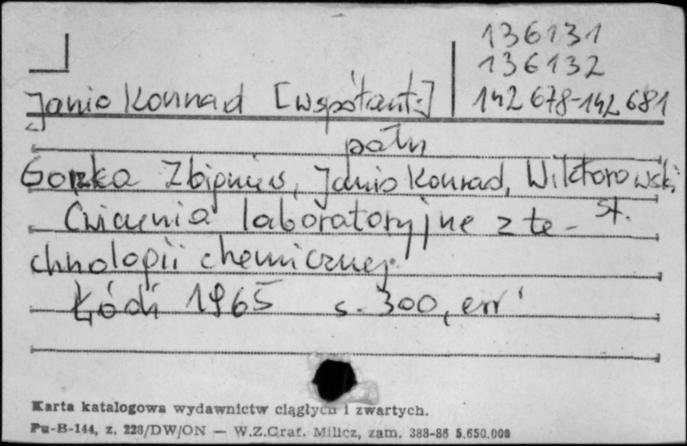 136131
136132
Janio Konrad [współaut.] 142 678-142 681
patrz
Gorzka Zbigniew, Janio Konrad, Wiktorowski
St.
Ćwiczenia laboratoryjne z te-
chnologii chemicznej.
Łódź 1965 s. 300, err
Karta katalogowa wydawnictw ciągłych i zwartych.
Pu-B-144, z. 228/DW/ON — W.Z.Graf. Milicz, zam. 388-86 5.650.000